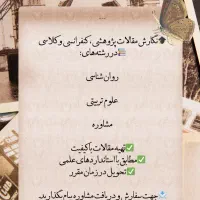 🎓نگارش مقالات پژوهشی، کنفرانسی و کلاسی
در رشته‌های:
روان‌شناسی
علوم تربیتی
مشاوره
✅تهیه مقالات باکیفیت
✅مطابق با استانداردهای علمی
✅تحویل در زمان مقرر
جهت سفارش و دریافت مشاوره پیام بگذارید.